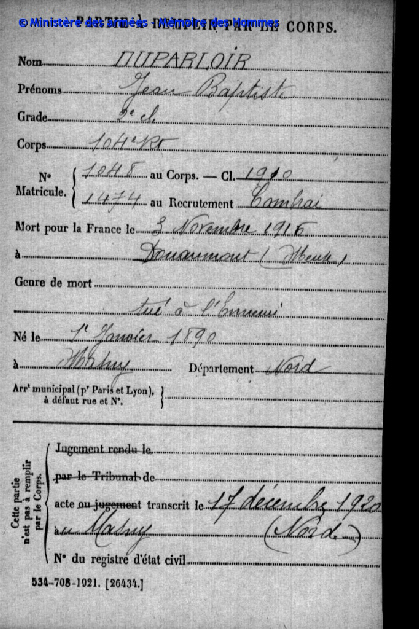 © Ministère des armées - Mémoire des Hommes
PARTIE À REMPLIR PAR LE CORPS.
Nom DUPARLOIR
Prénoms Jean Baptiste
Grade 2e cl
Corps 104e
Nº Matricule. 1048 au Corps. — Cl. 1910
1474 au Recrutement Cambrai
Mort pour la France le 3 Novembre 1916
à Douaumont (Meuse)
Genre de mort
tué à l'Ennemi
Né le 1er Janvier 1890
à Masny Département Nord
Arrt municipal (pr Paris et Lyon),
à défaut rue et Nº.
Cette partie n'est pas à remplir par le Corps.
Jugement rendu le
par le Tribunal de
acte ou jugement transcrit le 17 décembre 1920
Masny (Nord)
Nº du registre d'état civil
534-708-1921. [26434.]